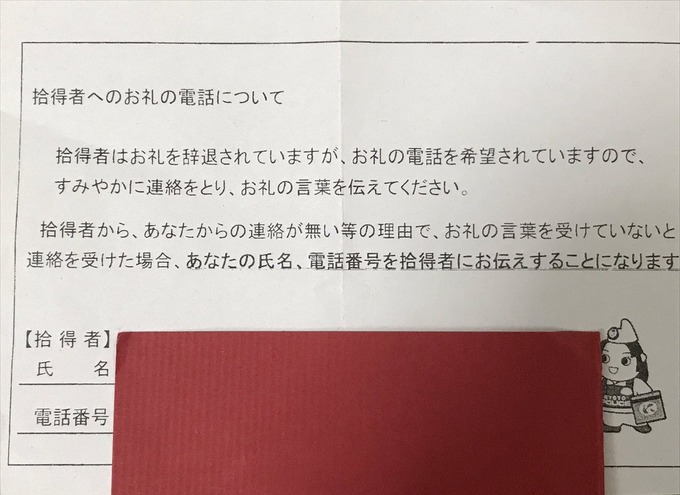 拾得者へのお礼の電話について
拾得者はお礼を辞退されていますが、お礼の電話を希望されていますので、
すみやかに連絡をとり、お礼の言葉を伝えてください。
拾得者から、あなたからの連絡が無い等の理由で、お礼の言葉を受けていないと
連絡を受けた場合、あなたの氏名、電話番号を拾得者にお伝えすることになります
【拾得者】
氏 名
電話番号
KYOTO
POLICE